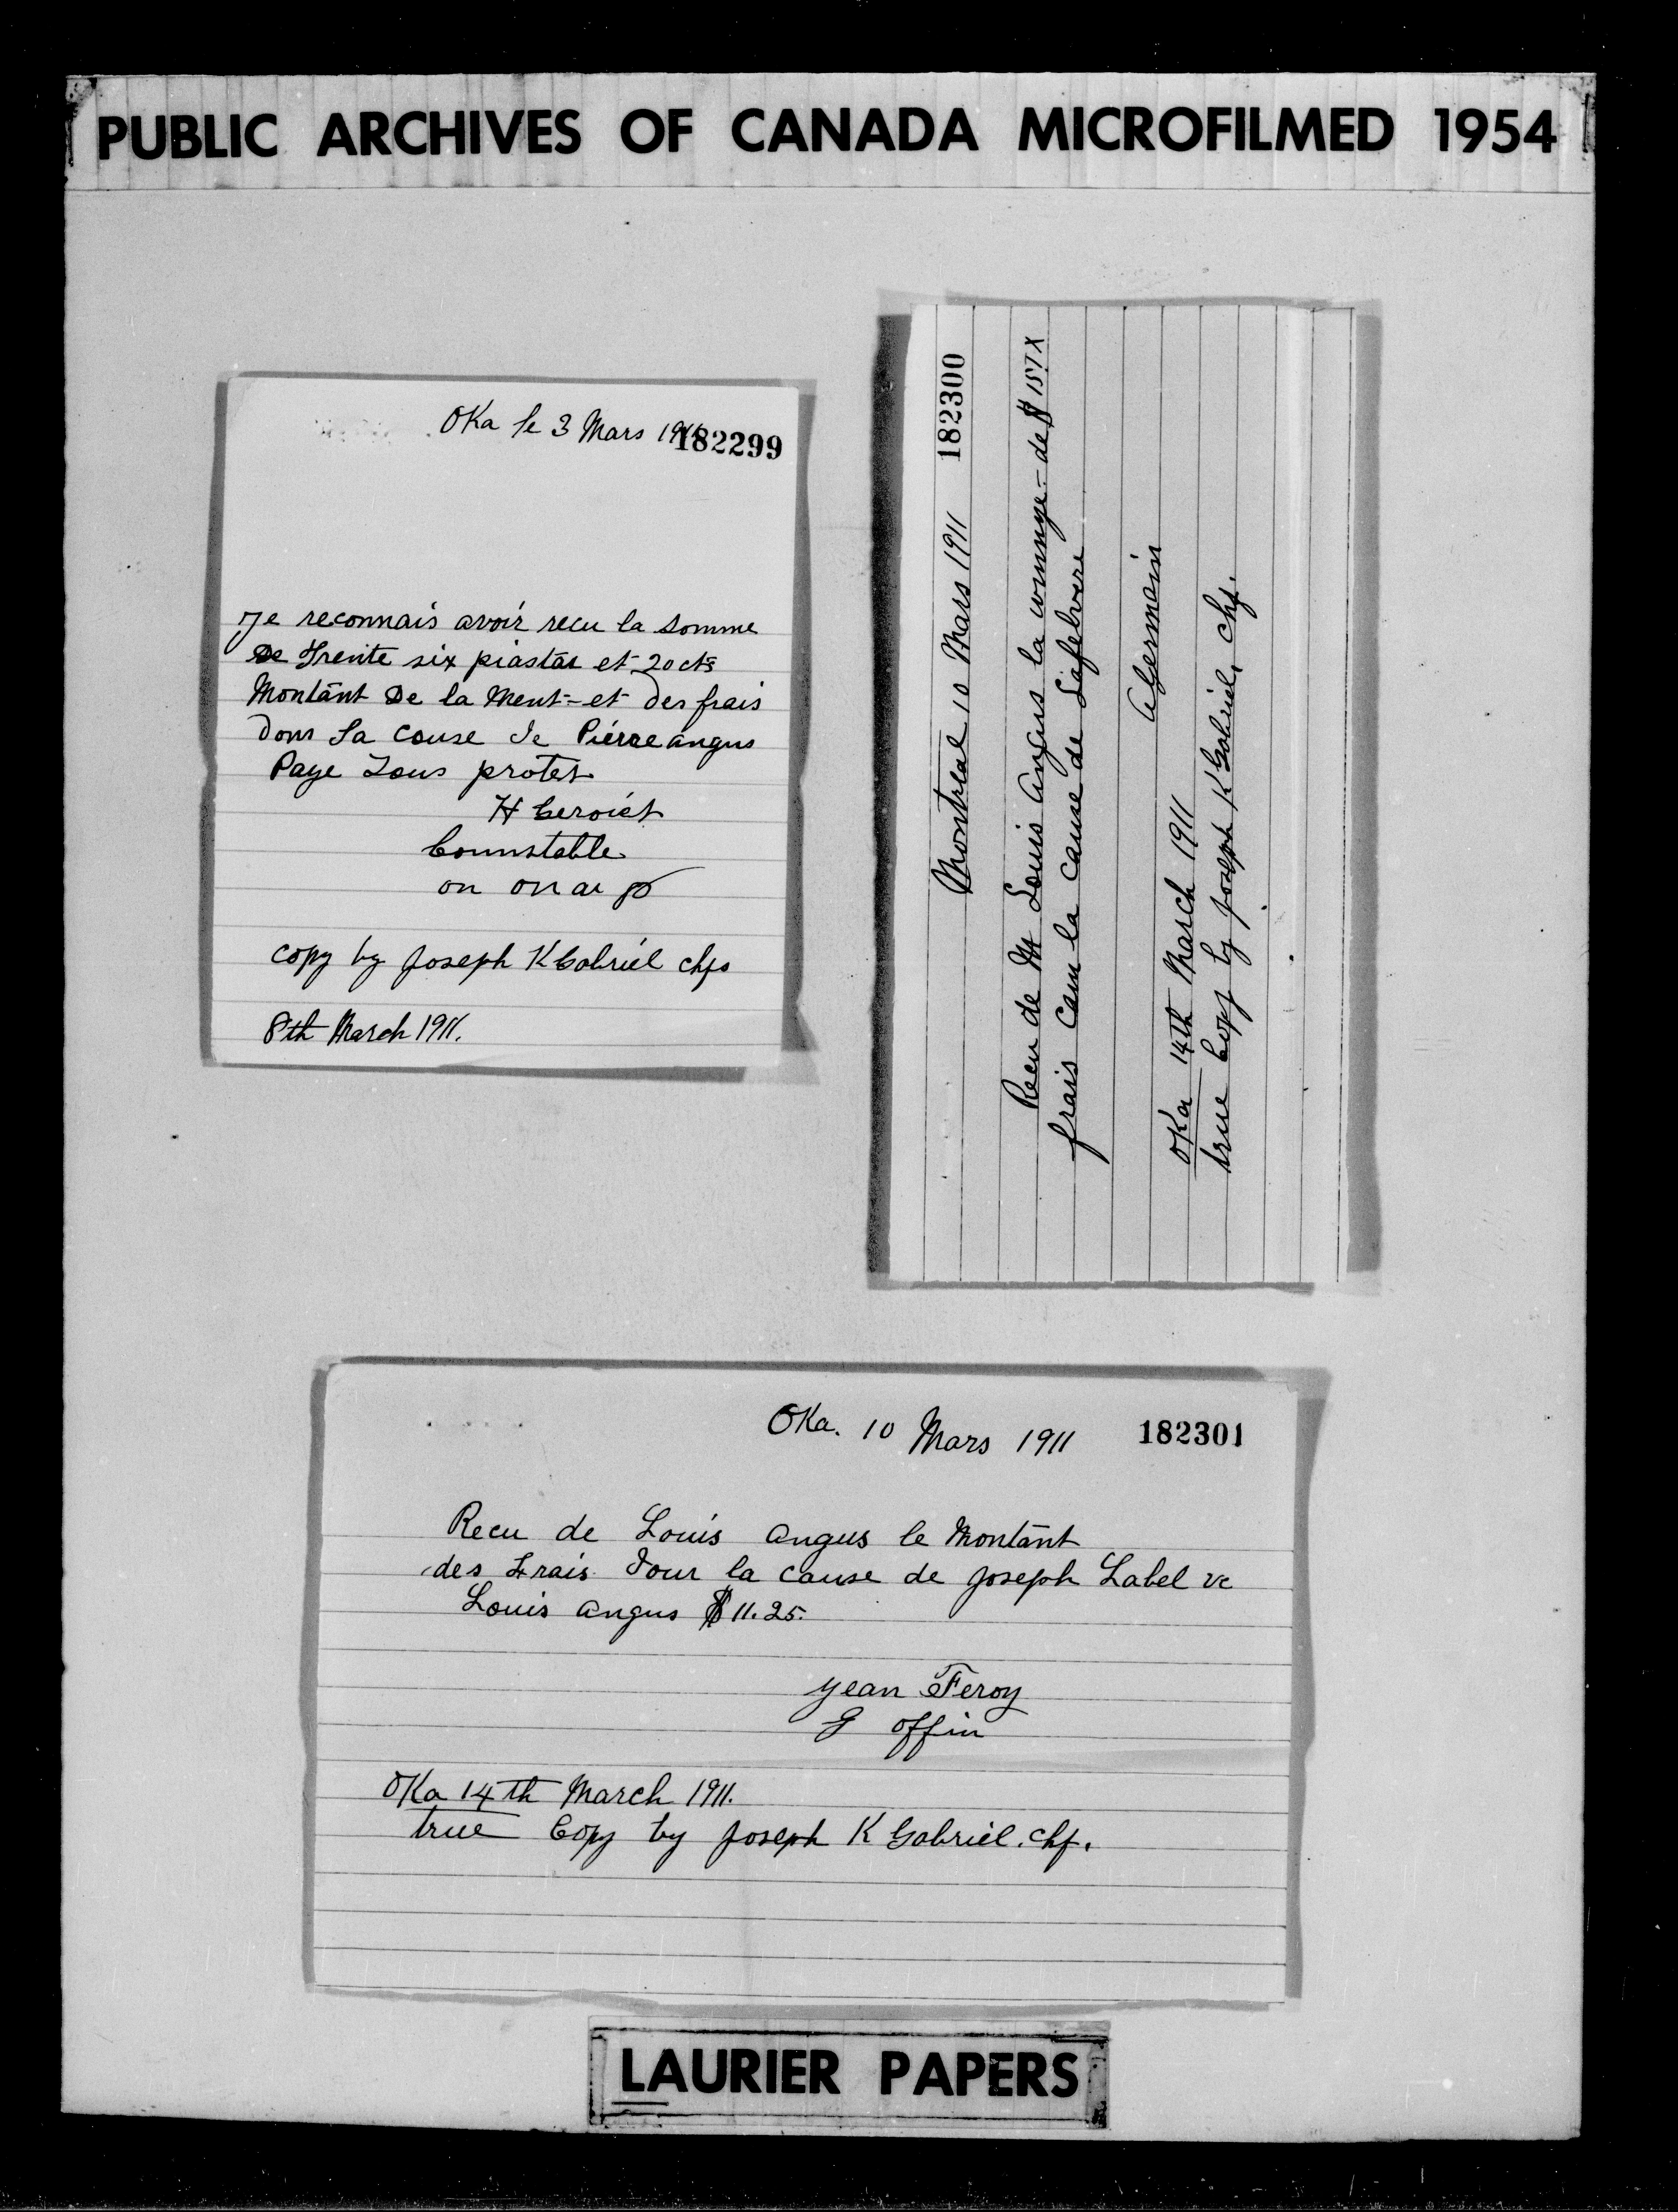 PUBLIC ARCHIVES OF CANADA MICROFILMED 1954
Oka le 3 Mars 1911
182299
Je reconnais avoir recu la somme
De Trente six piastas et 20 cts
Montant De la Ment- et Des frais
Dons La Couse de Pierre angus
Paye Sous protes
H
Counstable
copy by Joseph K Gabriel chf
8th March 1911.
182300
Montreal 10 Mars 1911
Recu de Mr Louis Angus la de $
frais la cause de Lafebvere
Germain
Oka 14th March 1911
true Copy by Joseph K Gabriel, chf.
Oka. 10 Mars 1911
182301
Recu de Louis Angus le Montant
des Frais Dour la cause de Joseph Label vc
Louis Angus $11.25.
Jean Feroy
G offin
Oka 14th March 1911.
true Copy by Joseph K Gabriel. chf.
LAURIER PAPERS